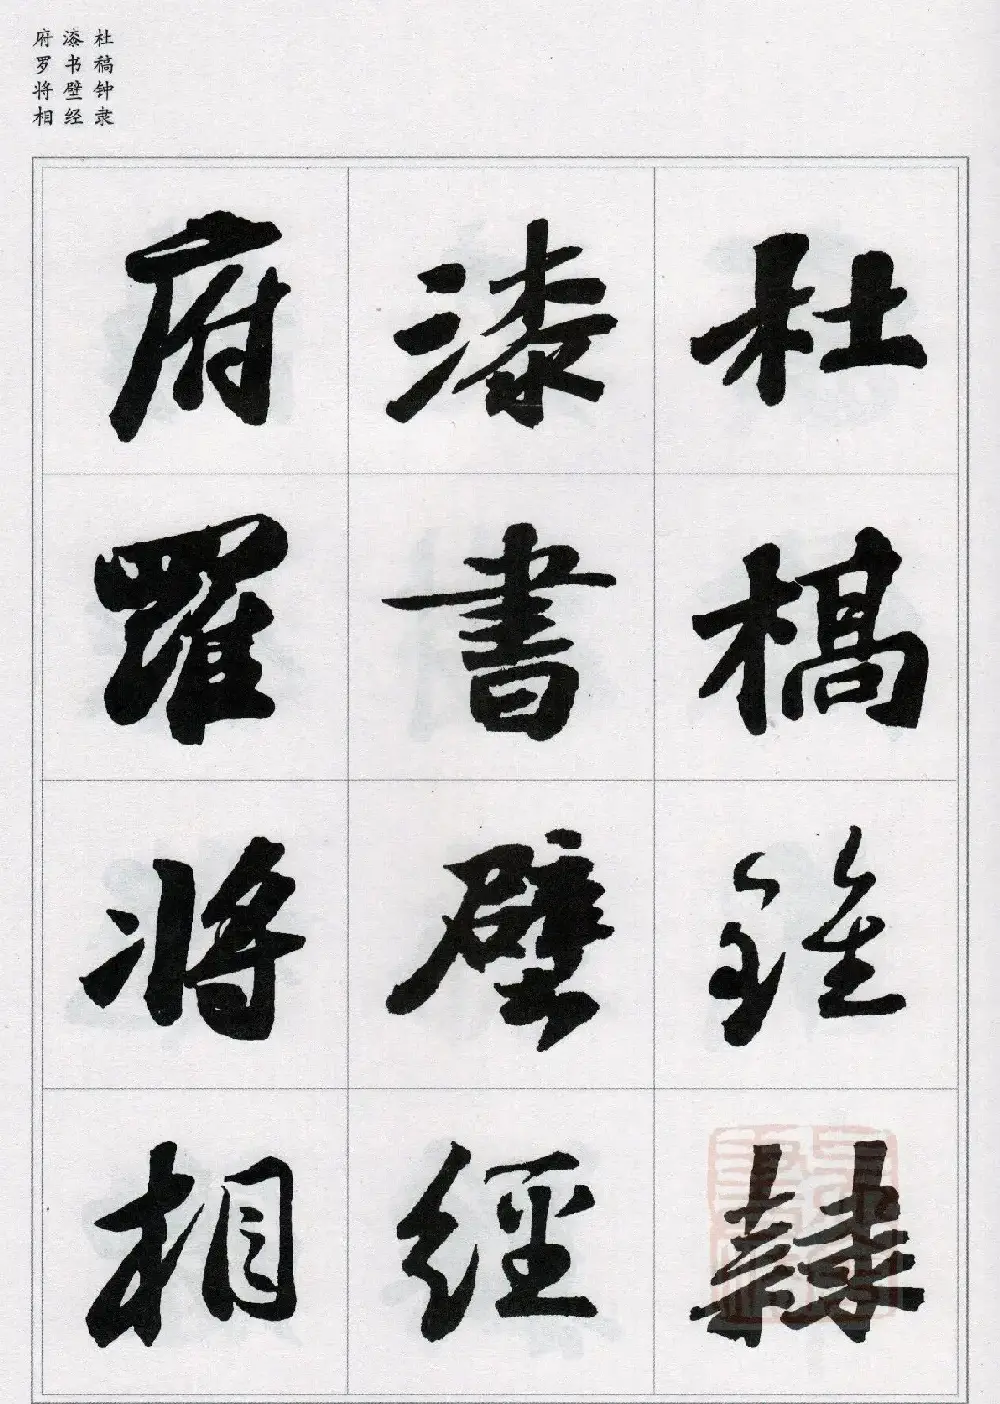 杜稿钟隶
漆书壁经
府罗将相
杜槁鍾隸
漆書壁經
府羅將相